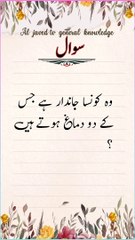 Al javed tv general knowledge
سوال
وہ کونسا جاندار ہے جس
کے دو دماغ ہوتے ہیں
؟